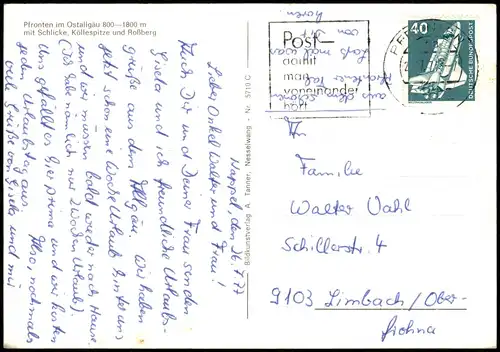 Pfronten im Ostallgäu 800—1800 m
mit Schlicke, Köllespitze und Roßberg
Nappel, den 26.7.77
Lieber Onkel Walter und Frau!
Auch Dir und Deiner Frau senden
Gisela und ich freundliche Urlaubs-
grüße aus dem Allgäu. Wir haben
jetzt schon eine Woche Urlaub hinter uns
und wir müssen bald wieder nach Hause.
(Ich habe nämlich nur 2 Wochen Urlaub).
Uns gefällt es hier prima und wir
jeden Urlaubstag aus. Also, nochmals
viele Grüße von Gisela und mir
Bildkunstverlag A. Tanner, Nesselwang - Nr. 5710 C
aus dem schönen
Laßt mal was
von
hören
Post—
damit
man
voneinander
hört
PF
40
DEUTSCHE BUNDESPOST
An
Familie
Walter Vahl
Schillerstr. 4
9103 Limbach/Ober-
frohna